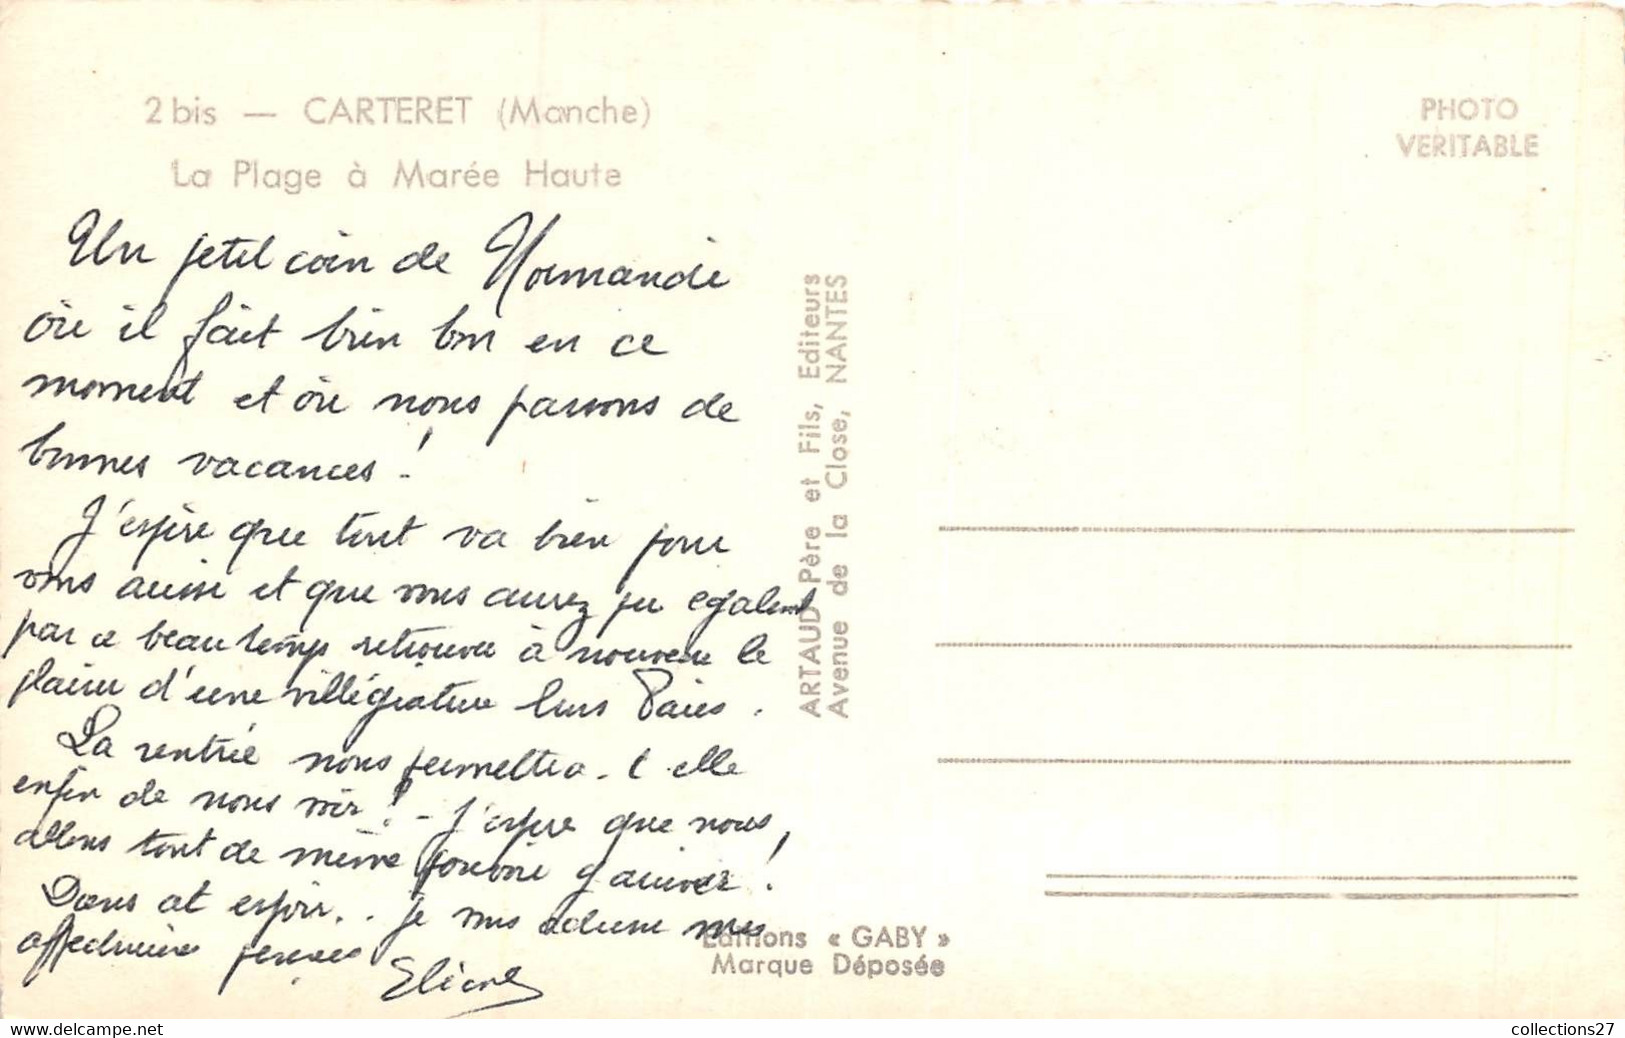 2 bis — CARTERET (Manche)
La Plage à Marée Haute
PHOTO
VERITABLE
Un petit coin de Normandie
où il fait bien bon en ce
moment et où nous passons de
bonnes vacances !
J'espère que tout va bien pour
vous aussi et que vous aurez pu egalement
par ce beau temps retrouver à nouveau le
plaisir d'une villégiature hors Paris.
La rentrée nous permettra-t-elle
enfin de nous voir ! - J'espère que nous
allons tout de même pouvoir y arriver !
Dans cet espoir.. je vous adresse mes
affectueuses pensées
ARTAUD Père et Fils, Editeurs
Avenue de la Close, NANTES
Editions « GABY »
Marque Déposée
collections27